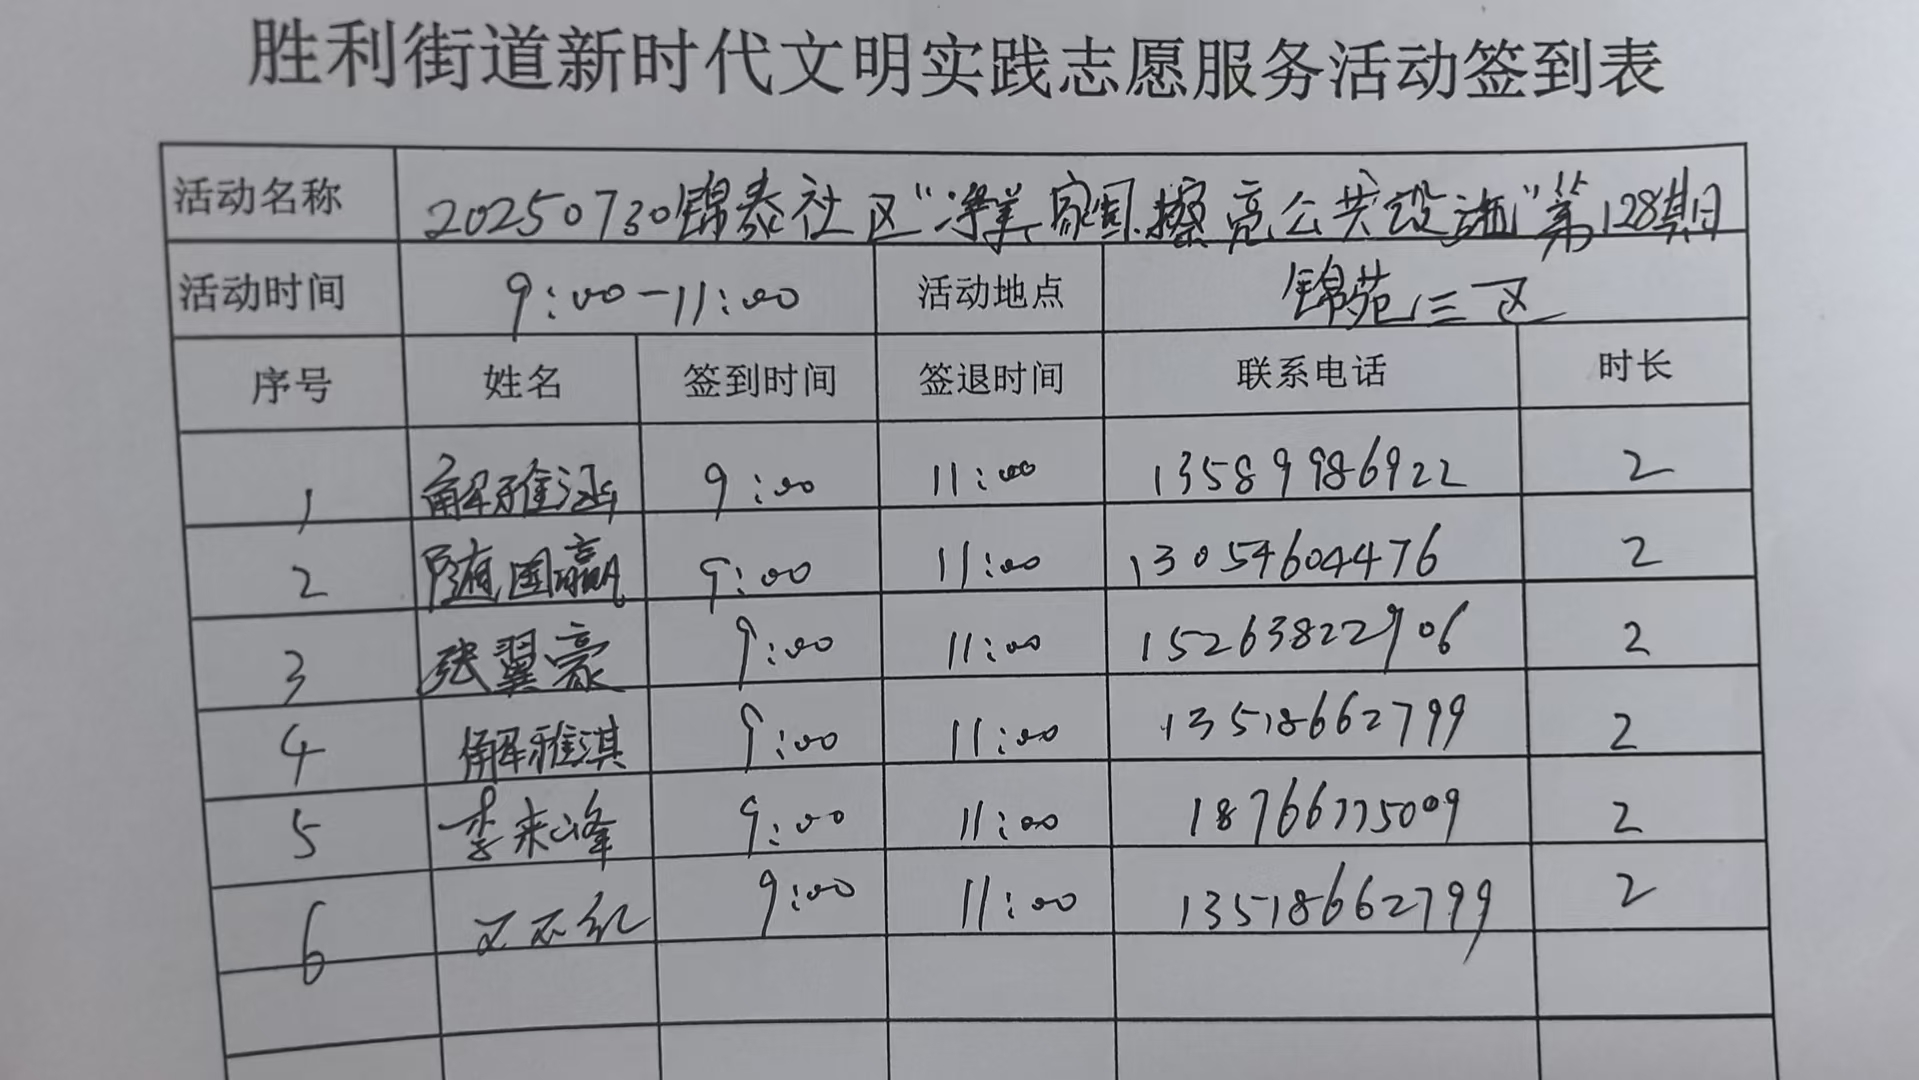 胜利街道新时代文明实践志愿服务活动签到表
活动名称 20250730锦泰社区“净美家园擦亮公共设施”第128期
活动时间 9:00-11:00 活动地点 锦苑三区
序号 姓名 签到时间 签退时间 联系电话 时长
1 解雅涵 9:00 11:00 13589986922 2
2 隋国赢 9:00 11:00 13054604476 2
3 张翼豪 9:00 11:00 15263822906 2
4 解雅淇 9:00 11:00 13518662799 2
5 李来峰 9:00 11:00 18766775009 2
6 9:00 11:00 13518662799 2